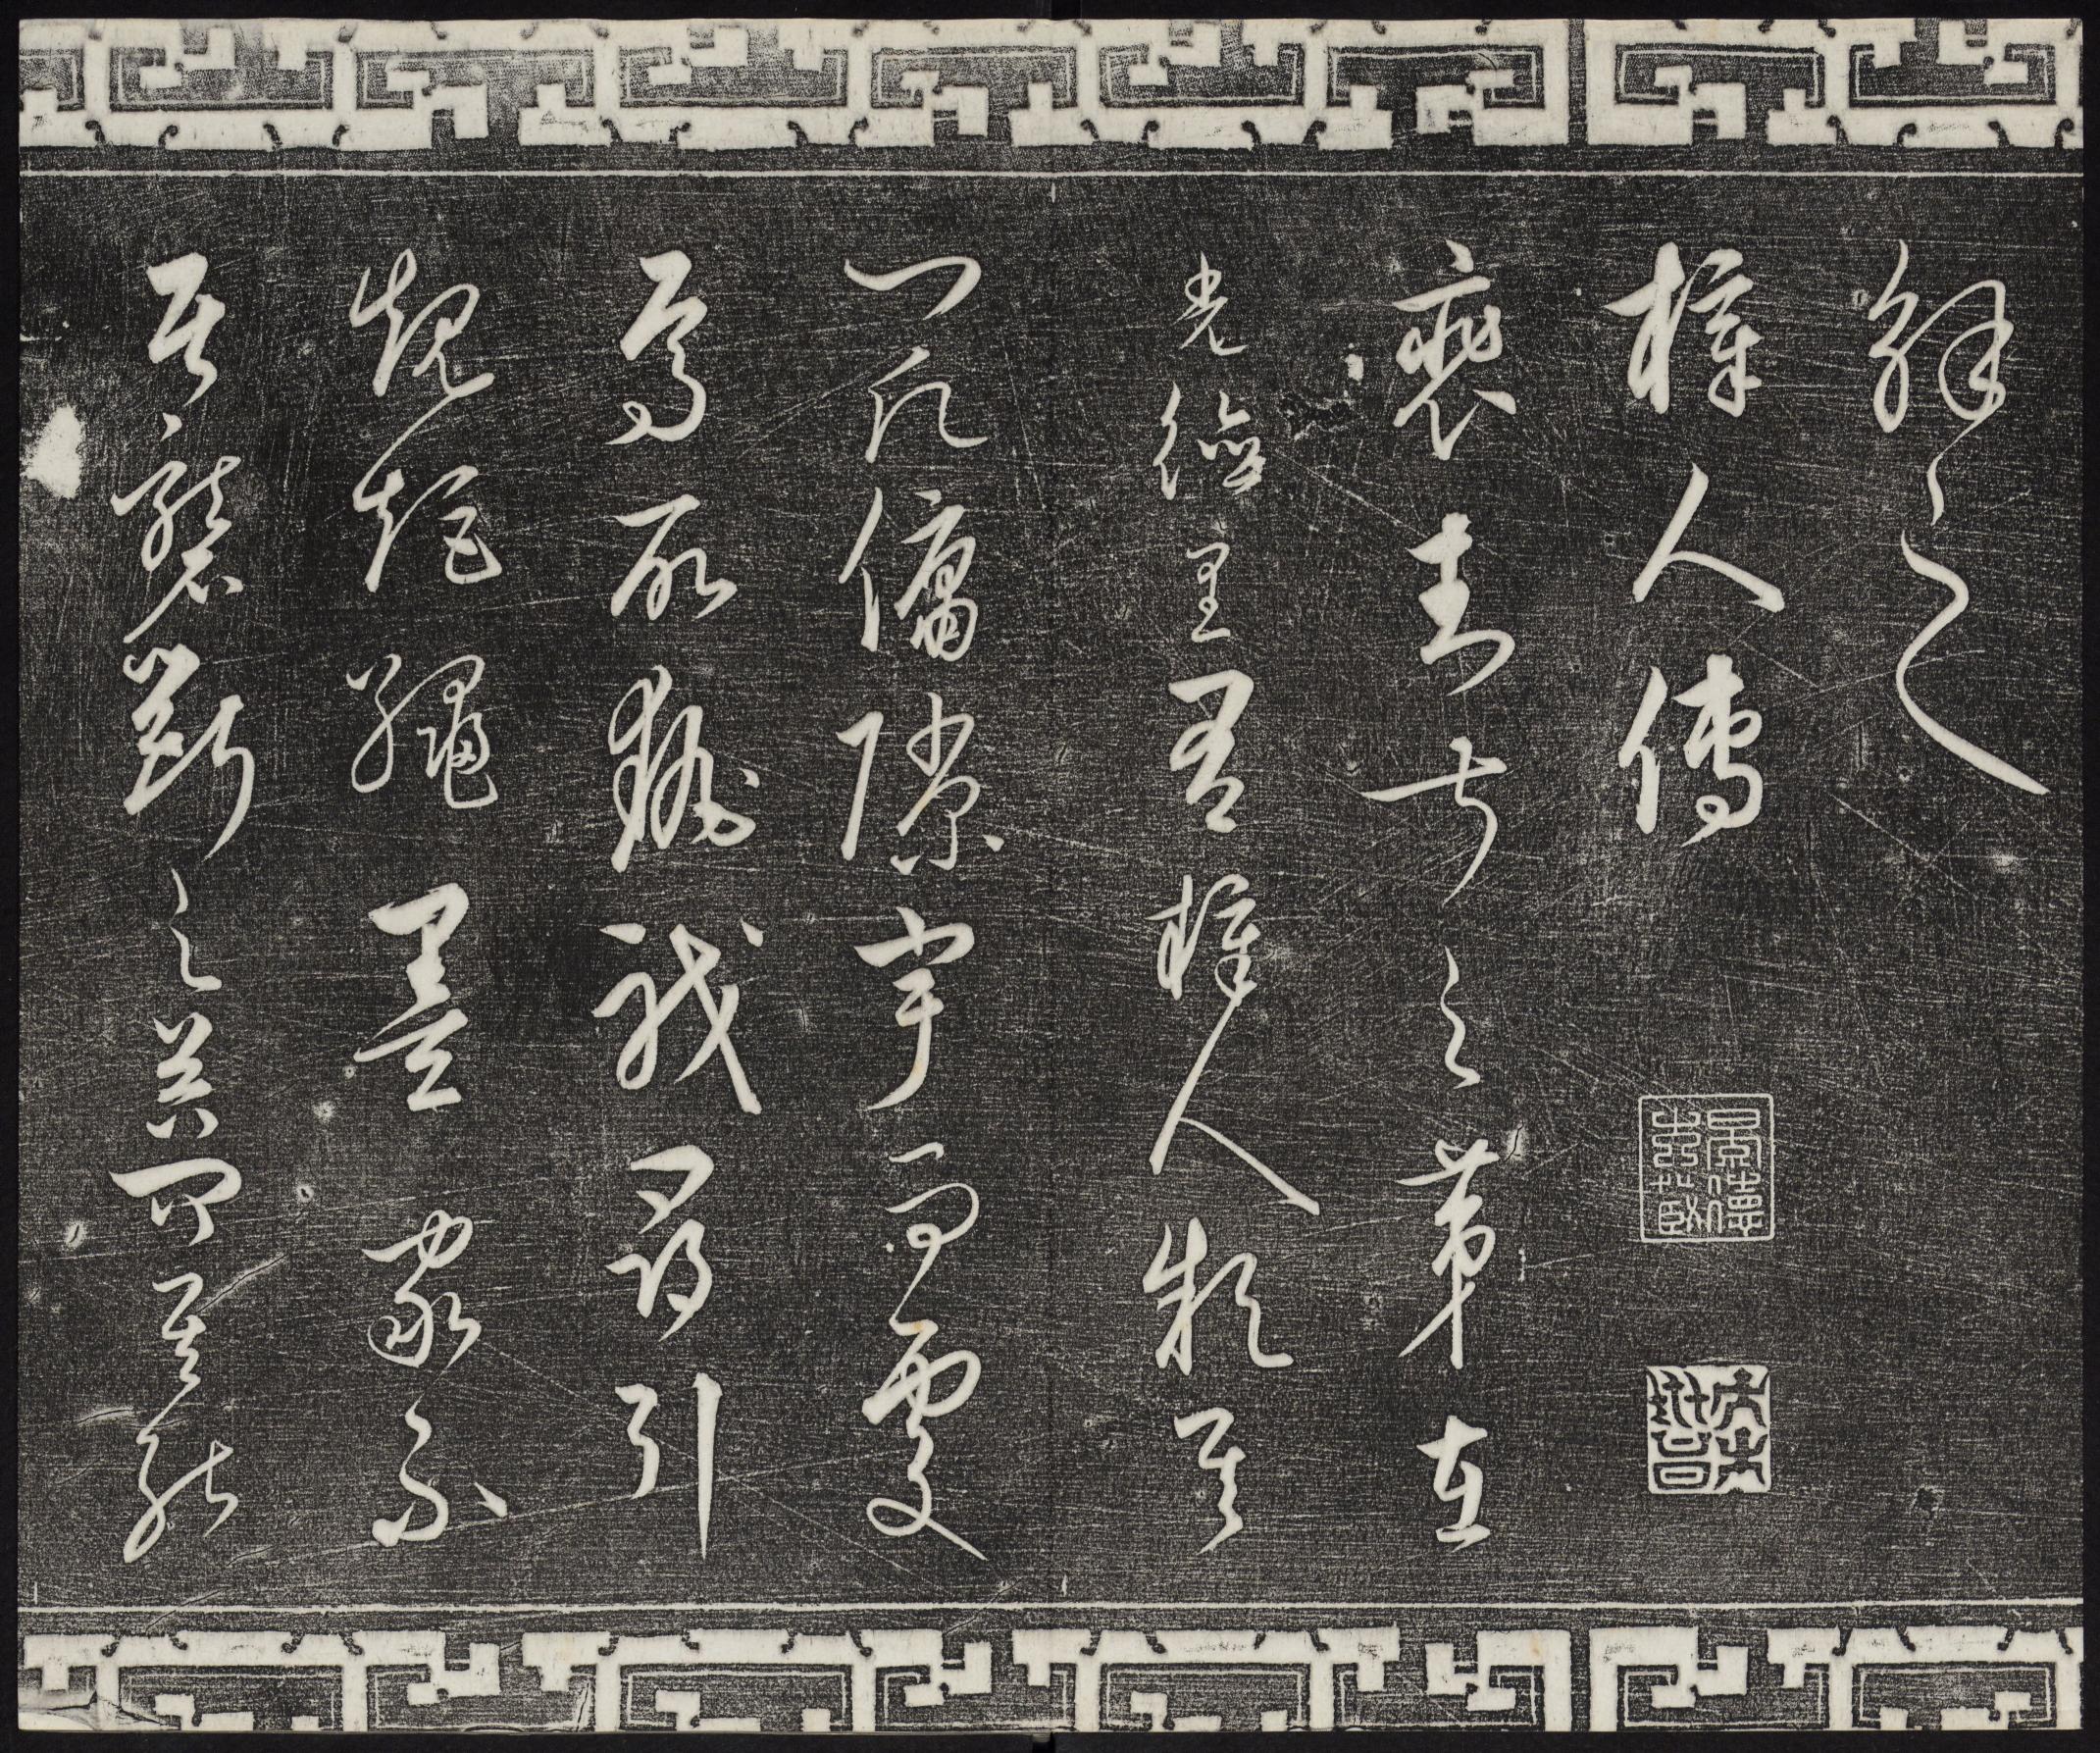 解之
梓人傳
裴封叔之第在
光德里有梓人款其
門願傭隟宇而處
焉所執職尋引
規矩繩墨家不
居礱斲之器問其能